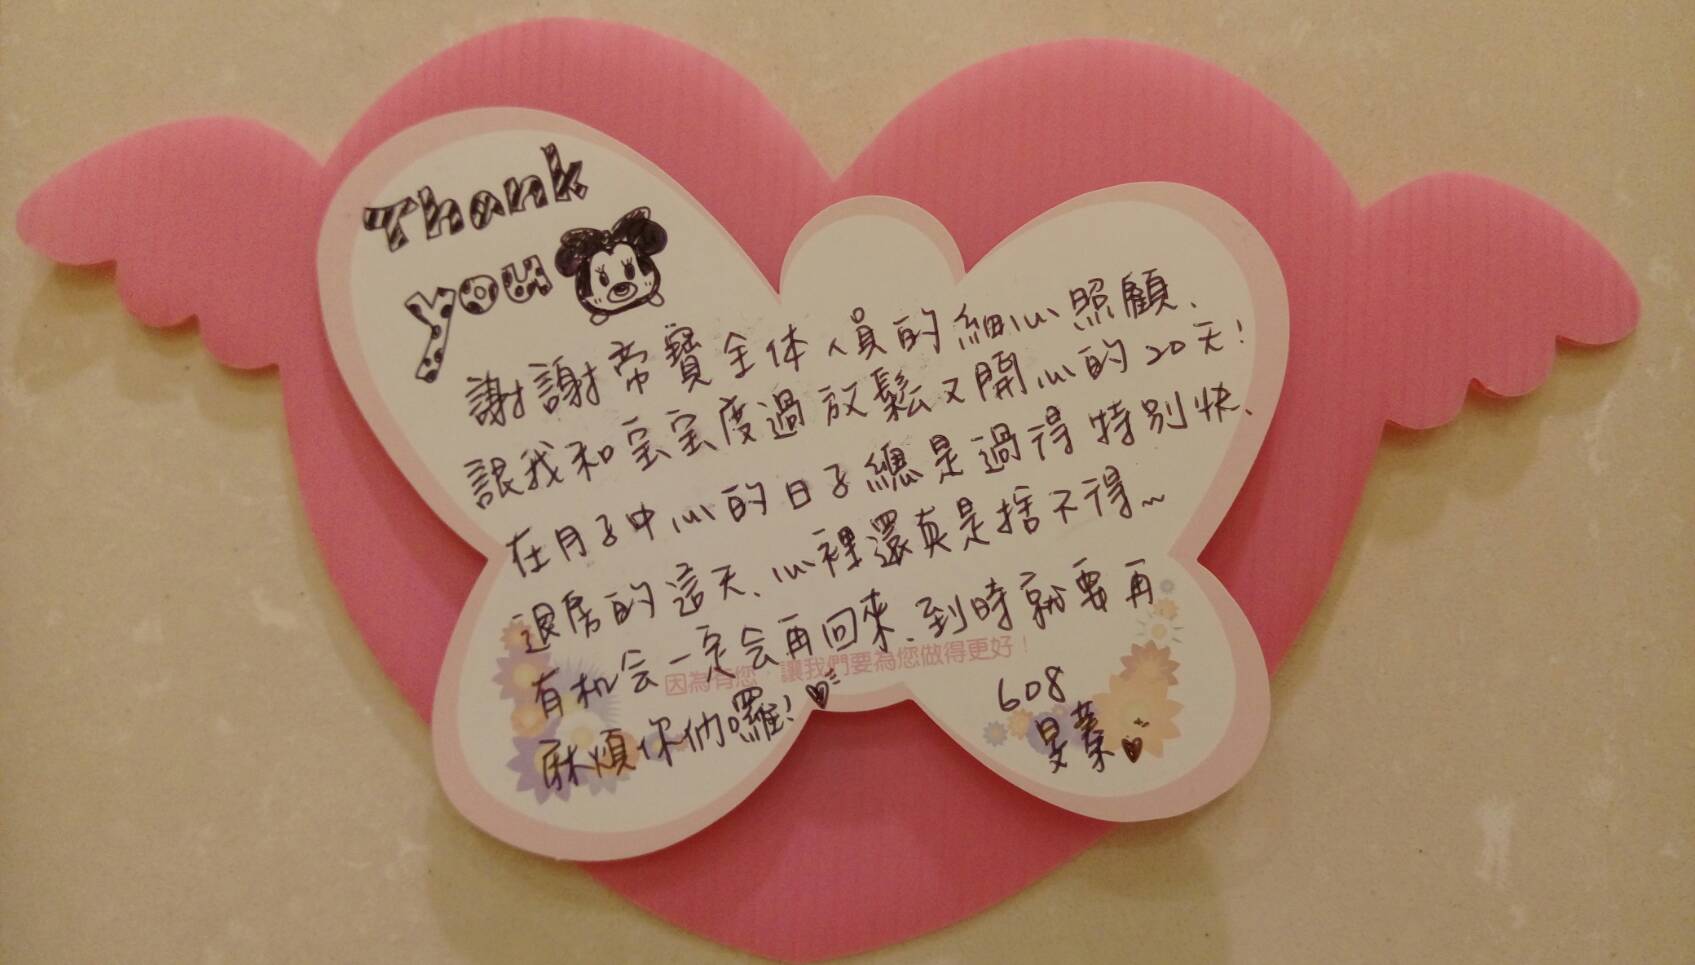 Thank
you
謝謝帝寶全体人員的細心照顧、
讓我和宝宝度過放鬆又開心的20天!
在月子中心的日子總是過得特別快、
退房的這天、心裡還真是捨不得~
有机会一定会再回來、到時就要再
麻煩你們囉!
因為有您,讓我們要為您做得更好!
608
旻蓁